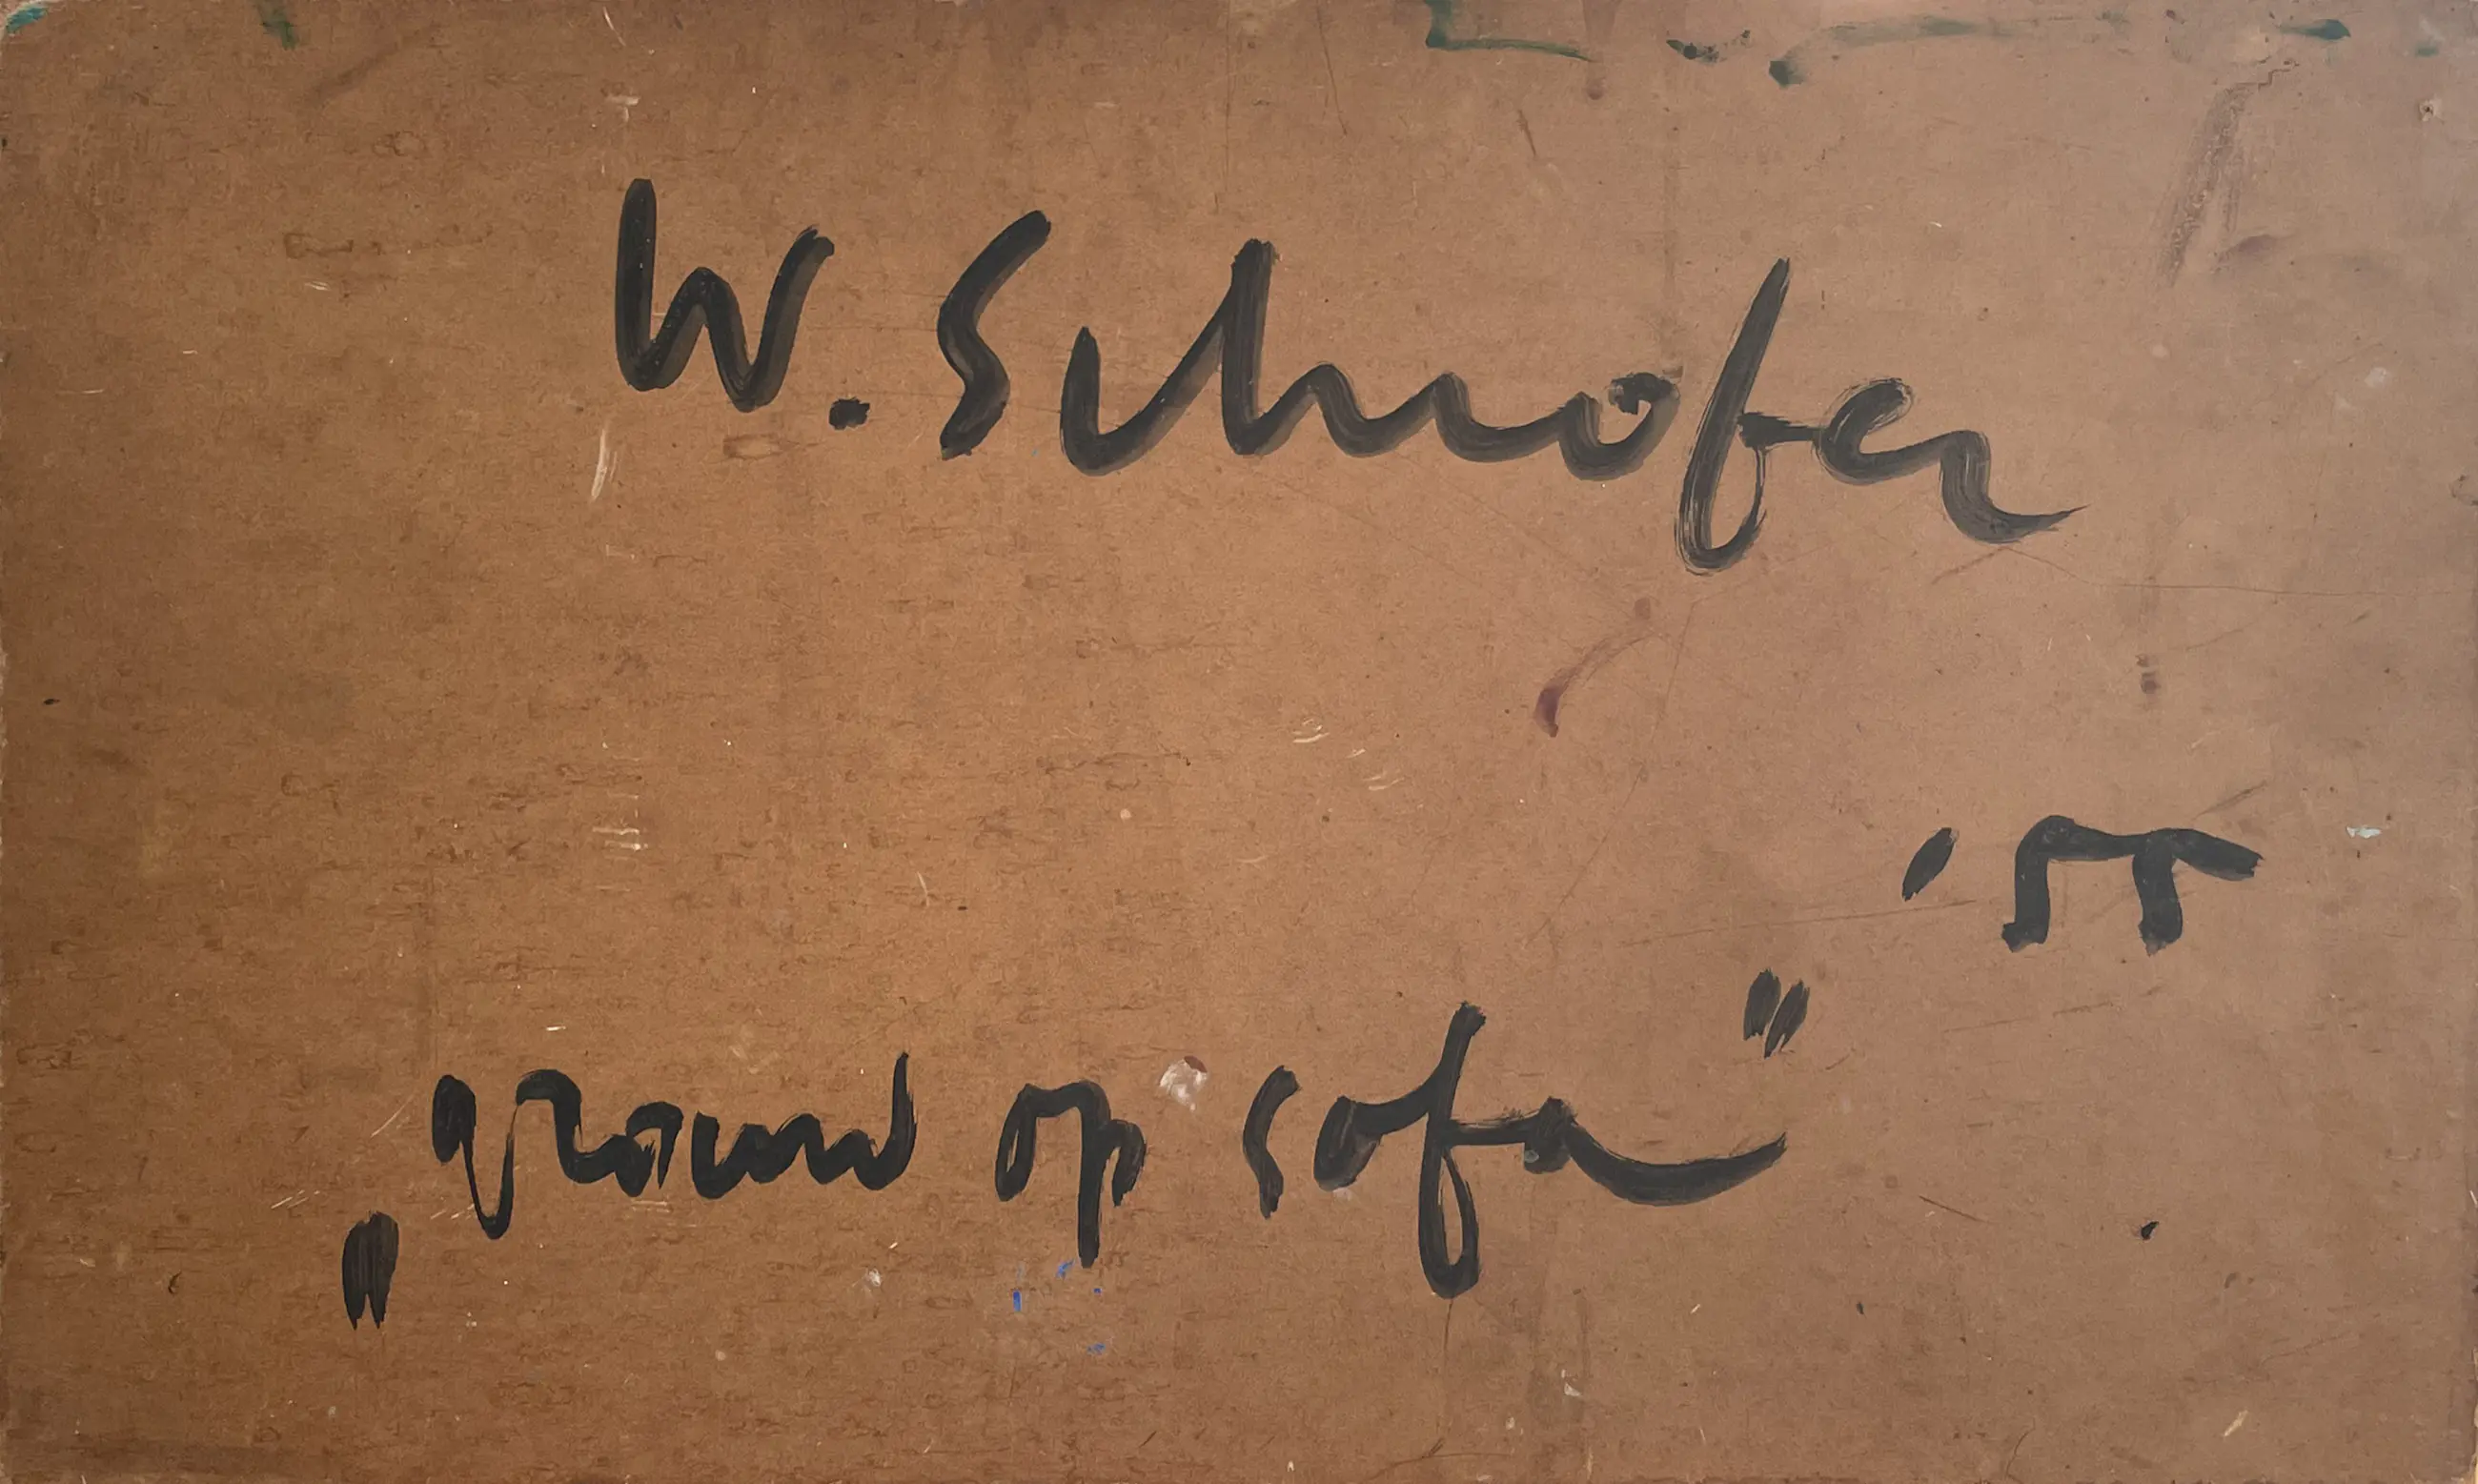 W. Schrofer
'55
„vrouw op sofa”